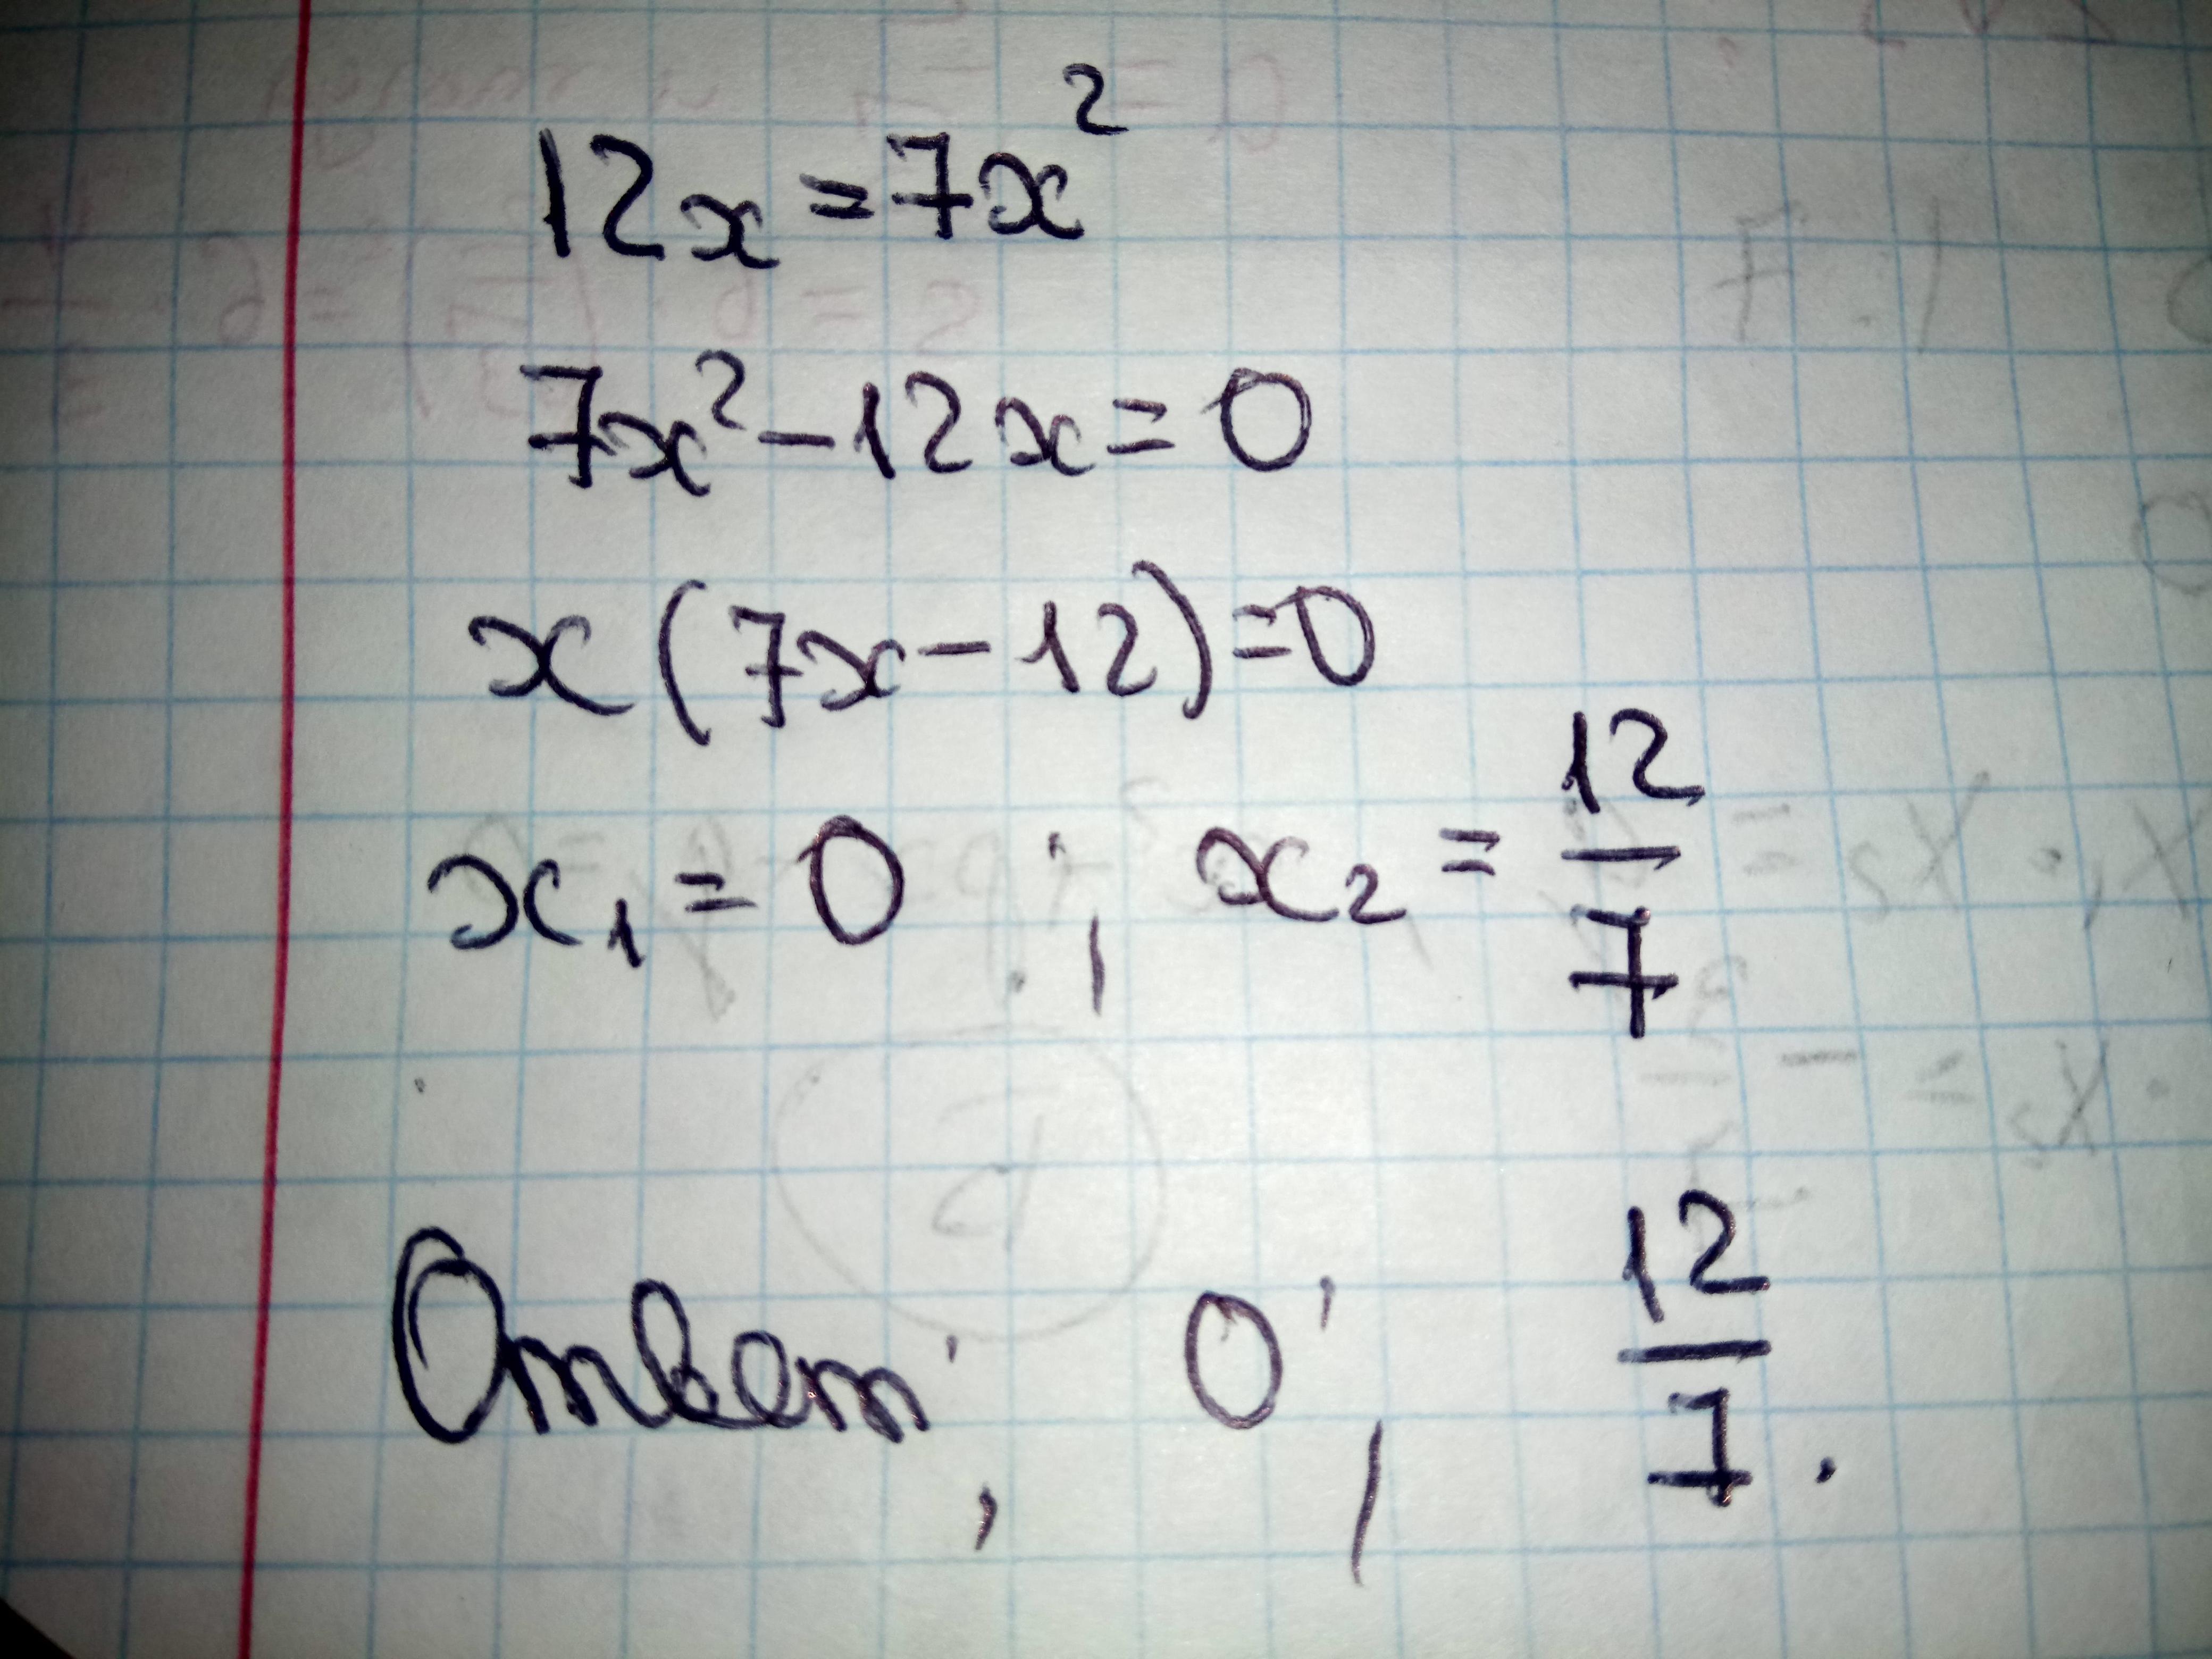 12x=7x²
7x²-12x=0
x(7x-12)=0
x₁=0 ; x₂=12/7
Ответ: 0; 12/7.